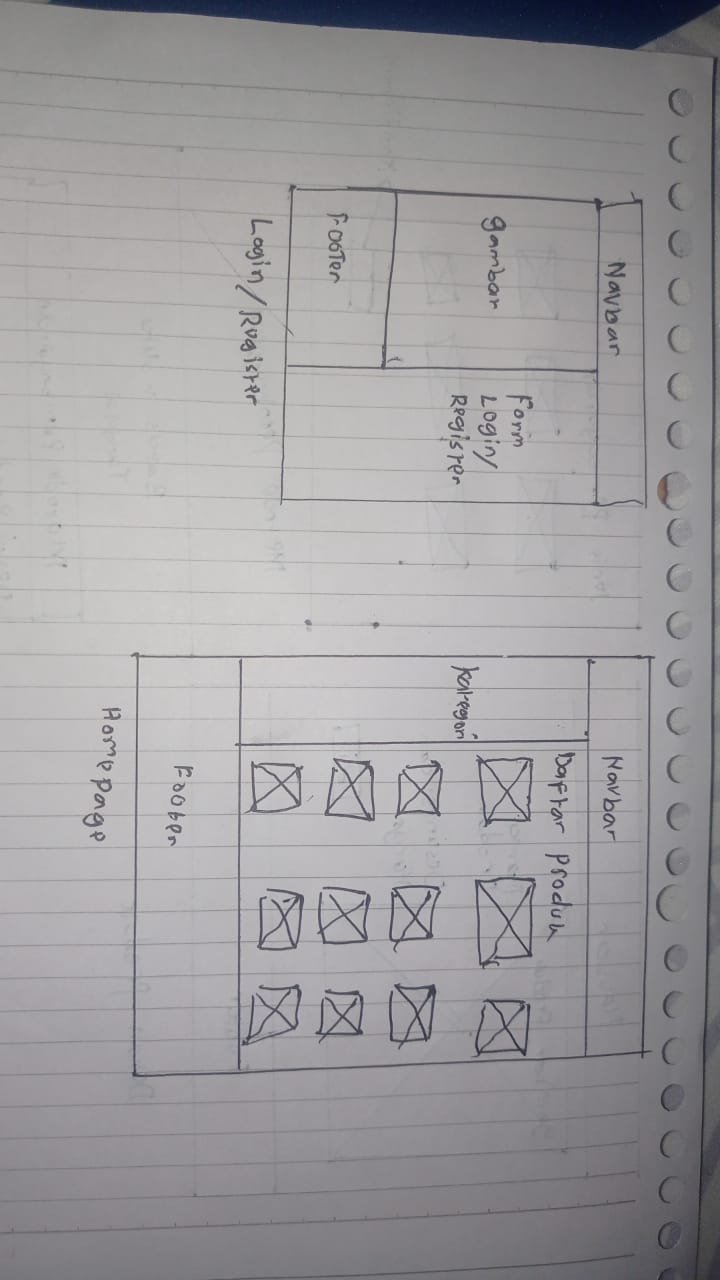 Navbar
gambar
Form
Login/
Register
Footer
Login/Register
Navbar
Kategori
Daftar Produk
Footer
Homepage